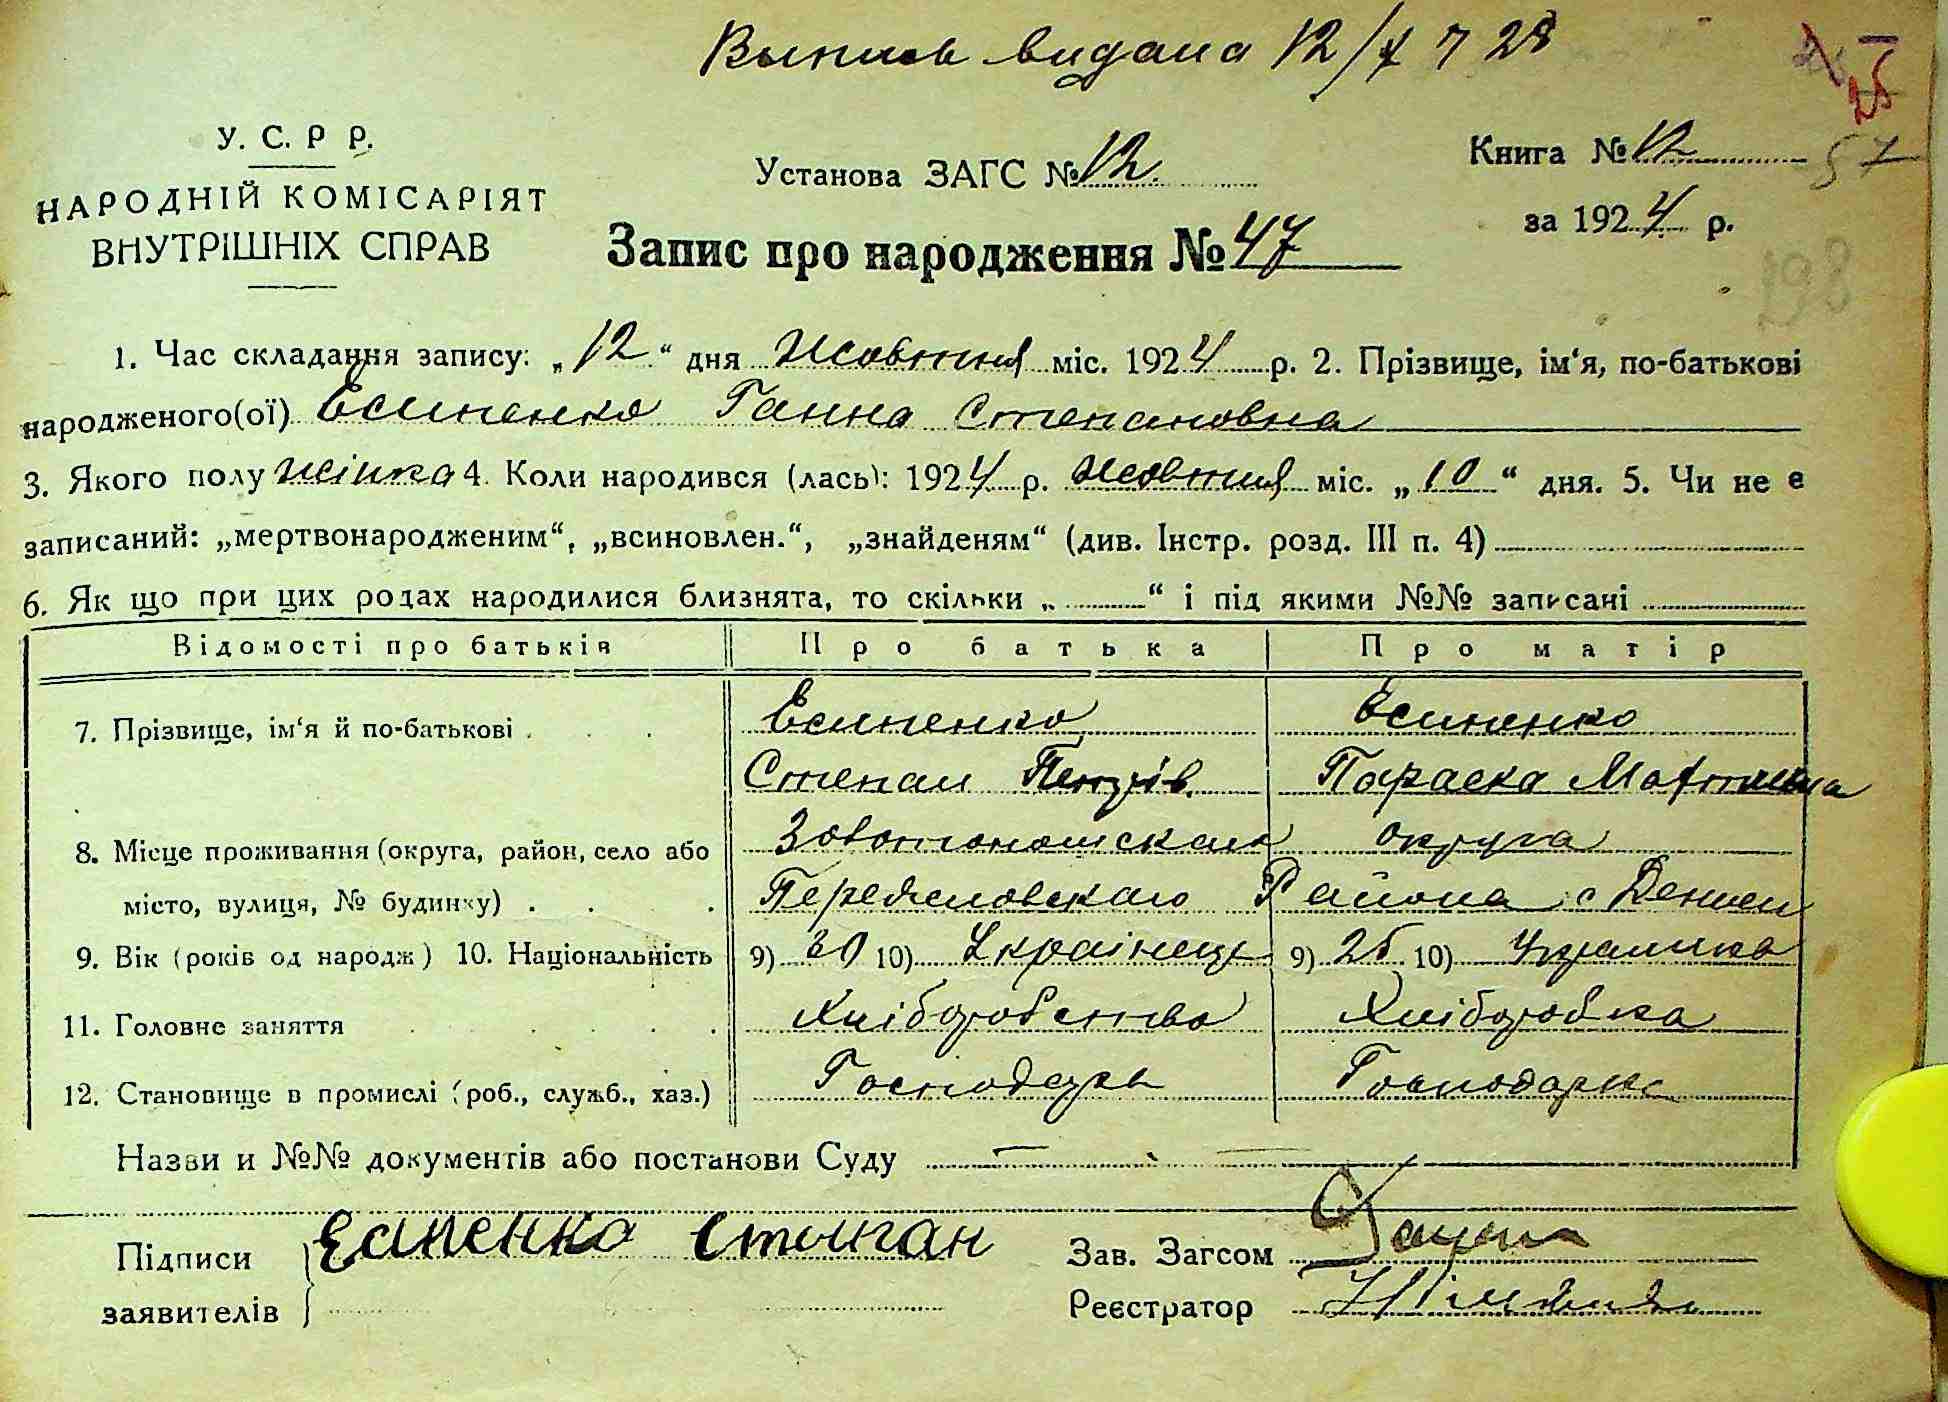 Выпись видана 12/X 28
У. С. Р Р.
НАРОДНІЙ КОМІСАРІЯТ
ВНУТРІШНІХ СПРАВ
Установа ЗАГС № 12
Книга № 12
57
за 1924 р.
Запис про народження № 47
198
1. Час складання запису: „12“ дня Жовтня міс. 1924 р. 2. Прізвище, ім‘я, по-батькові
народженого(ої) Есипенко Ганна Степановна
3. Якого полу жінка 4. Коли народився (лась): 1924 р. Жовтня міс. „10“ дня. 5. Чи не е
записаний: „мертвонародженим“, „всиновлен.“, „знайденям“ (див. Інстр. розд. III п. 4)
6. Як що при цих родах народилися близнята, то скільки „ “ і під якими №№ записані
Відомості про батьків Про батька Про матір
7. Прізвище, ім‘я й по-батькові Есипенко Есипенко
Степан Петрів. Параска
8. Місце проживання (округа, район, село або Золотоношская округа
місто, вулиця, № будинку) Переяславскаго Района с Деньги
9. Вік (років од народж) 10. Національність 9) 30 10) Українець 9) 25 10) Украинка
11. Головне заняття Хліборобство Хліборобка
12. Становище в промислі (роб., служб., хаз.) Господарь Господарка
Назви и №№ документів або постанови Суду
Підписи Есипенко Степан Зав. Загсом
заявителів Реєстратор